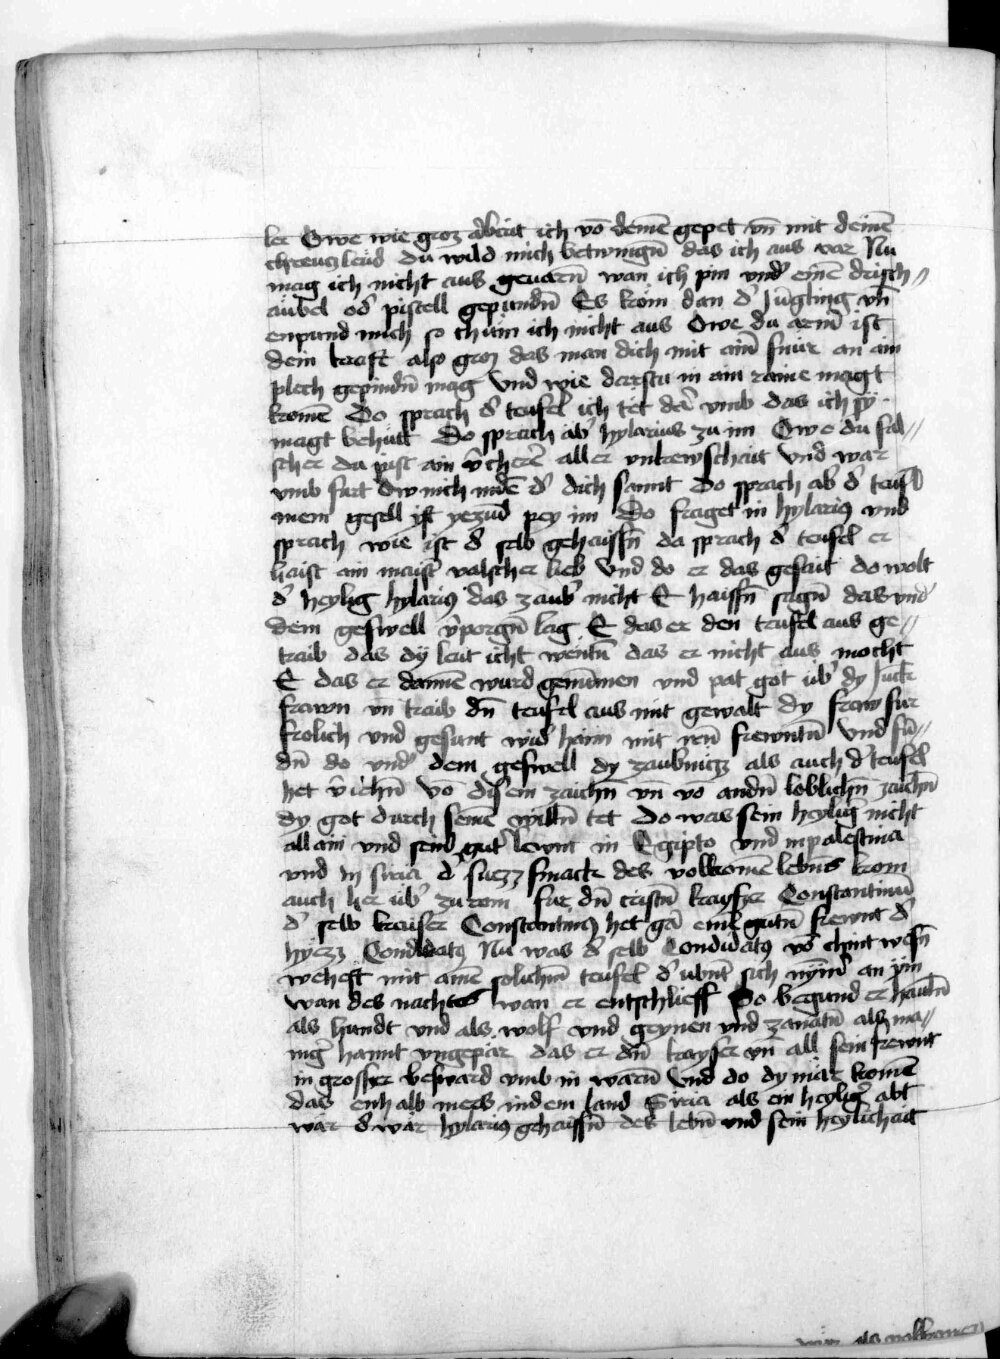 ler Owe wie groz arbeit ich vō deinē gepet vn̄ mit deinē
chreucz leid du wild mich betwingn̄ das ich aus var Nu
mag ich nicht aus gevarn̄ wan ich pin vnd' einē drisch〃
aübel od' pistell gepundn̄ Es köm dan d' Jūgling vn̄
enpund mich so chüm ich nicht aus Owe du arm̄ ist
dein kraft also groz das man dich mit aim̄ snür an ain
plech gepindn̄ mag Vnd wie darstu in ain raine magt
komē Do sprach d' teufel ich tët da' vmb das ich sy
magt behütt Do sprach ab' hylarius zu im Owe du fal〃
scher du pist ain v̄cherer aller vntrewschait Vnd war
vmb furt dw nich in dē d' dich sannt Do sprach ab' d' teufl
mein gesell ist yezūd pey im Do fraget in hylari9 vnd
sprach wie ist d' selb gehaissn̄ da sprach d' teufel er
haist ain maist' valscher lieb Vnd do er das gesait do wolt
d' heylig hylari9 das zaub' nicht E haissn̄ sagn̄ das vnd'
dem geswell v̄porgn̄ lag E das er den teufel aus ge〃
traib das dÿ leut icht wentn̄ das er nicht aus mocht
E das er dannē wurd genūmen vnd pat got üb' dy Juck
frawn vn̄ traib dn̄ teufel aus mit gewalt dy fraw fur
frolich vnd gesunt wid' haim mit iren̄ frewntn̄ Vnd fū〃
dn̄ do vnd' dem geswell dy zaubnicz als auch d' teufel
het v̄iehn̄ Vō disem zaichn̄ vn̄ vō andn̄ loblichn̄ zaichn̄
dy got durch seinē willn̄ tet Do was sein heylig' nicht
all ain vnd sein gut' lewnt in Egipto vnd in palestina
vnd in siria d' suezz smack des volkomē lebns kom
auch her üb' zu rom fur dn̄ cristn̄ kayser Constantinū
d' selb kaiser Constantin9 het gā einē gutn̄ frewnt d'
hyezz Condidat9 Nu was d' selb Condidat9 vō chint wesn̄
weheft mit ainē solichm̄ teufel d' vbnt sich nym̄' an ym
wan des nachtes wan er entschlieff So begund er haūln̄
als hundt vnd als wolf vnd geynen vnd zanatn̄ als ma〃
nig' hannt vngepär das er dn̄ kayser vn̄ all sein frewnt
in grosser beswärd vmb in warn̄ Vnd do dy mär komē
das enhalb mers in dem land Siria als ein heylig' abt
war d' war hylari9 gehaissn̄ des lebn̄ vnd sein heylichait
als volkomen